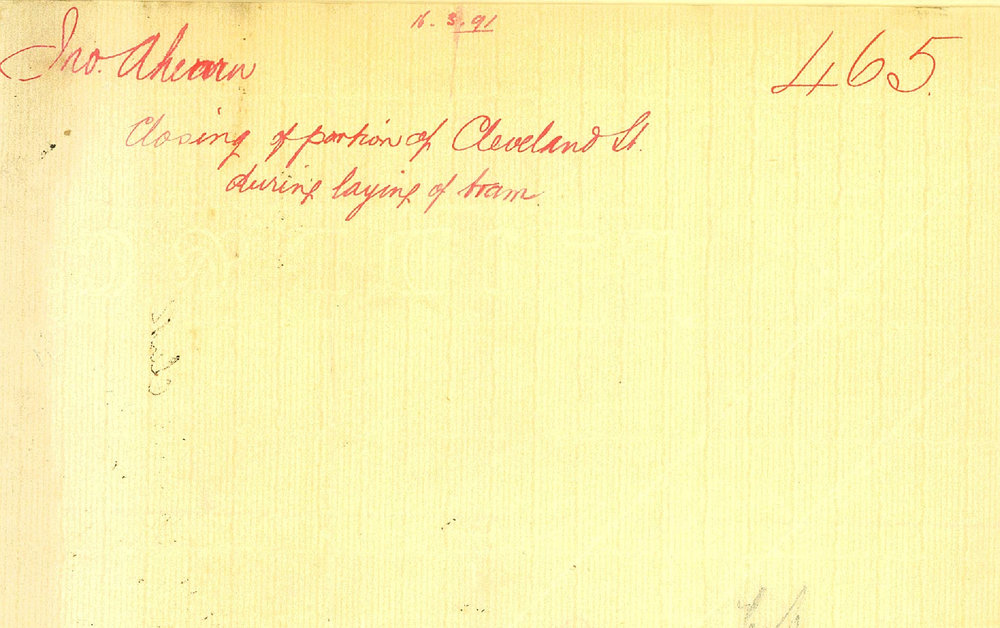 16.3.91
Jno. Ahearn
465.
Closing of portion of Cleveland St.
during laying of tram.